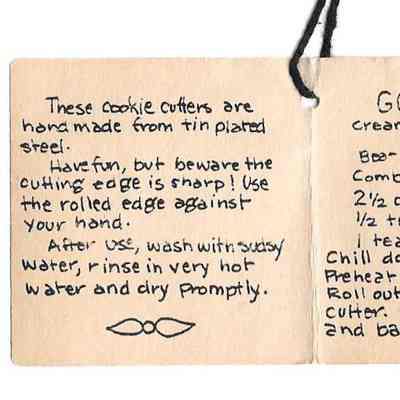 These cookie cutters are
handmade from tin plated
steel.
Have fun, but beware the
cutting edge is sharp! Use
the rolled edge against
your hand.
After use, wash with sudsy
water, rinse in very hot
water and dry promptly.
crea
Bea
Comb
2 1/2
1/2
1 tea
Chill
Preheat
Roll out
cutter.
and ba